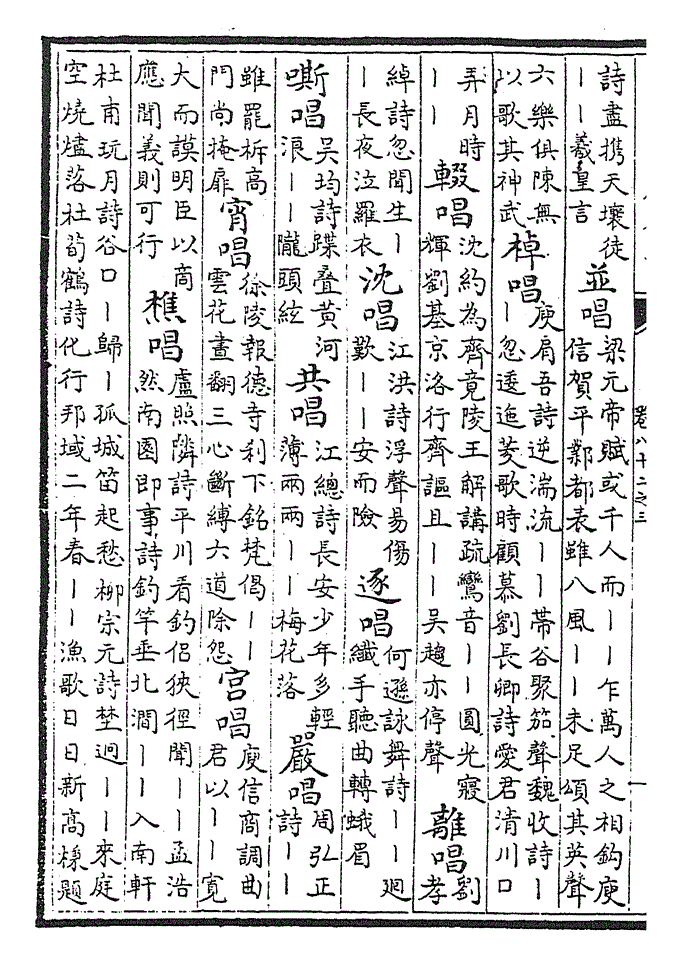 詩盡携天壤徒
丨丨羲皇言
並唱
梁元帝賦或千人而丨丨乍萬人之相鈎庾
信賀平鄴都表雖八風丨丨未足頌其英聲
六樂俱陳無
以歌其神武
棹唱
庾肩吾詩逆湍流丨丨帶谷聚笳聲魏收詩丨
丨忽逶迤菱歌時顧慕劉長卿詩愛君清川口
弄月時
丨丨
輟唱
沈約為齊竟陵王解講疏鸞音丨丨圓光寢
輝劉基京洛行齊謳且丨丨吳趨亦停聲
離唱
劉
孝
綽詩忽聞生丨
丨長夜泣羅衣
沈唱
江洪詩浮聲易傷
歎丨丨安而險
逐唱
何遜詠舞詩丨丨廻
纖手聽曲轉蛾眉
嘶唱
吳均詩蹀叠黃河
浪丨丨隴頭絃
共唱
江總詩長安少年多輕
薄兩兩丨丨梅花落
嚴唱
周弘正
詩丨丨
雖罷柝高
門尚掩扉
宵唱
徐陵報德寺刹下銘梵偈丨丨
雲花晝翻三心斷縛六道除怨
宮唱
庾信商調曲
君以丨丨寬
大而謨明臣以商
應聞義則可行
樵唱
盧照隣詩平川看釣侶狹徑聞丨丨孟浩
然南園即事詩釣竿垂北澗丨丨入南軒
杜甫玩月詩谷口丨歸丨孤城笛起愁柳宗元詩埜迥丨丨來庭
空燒燼落杜荀鶴詩化行邦域二年春丨丨漁歌日日新高棅題
卷八十二之三
一